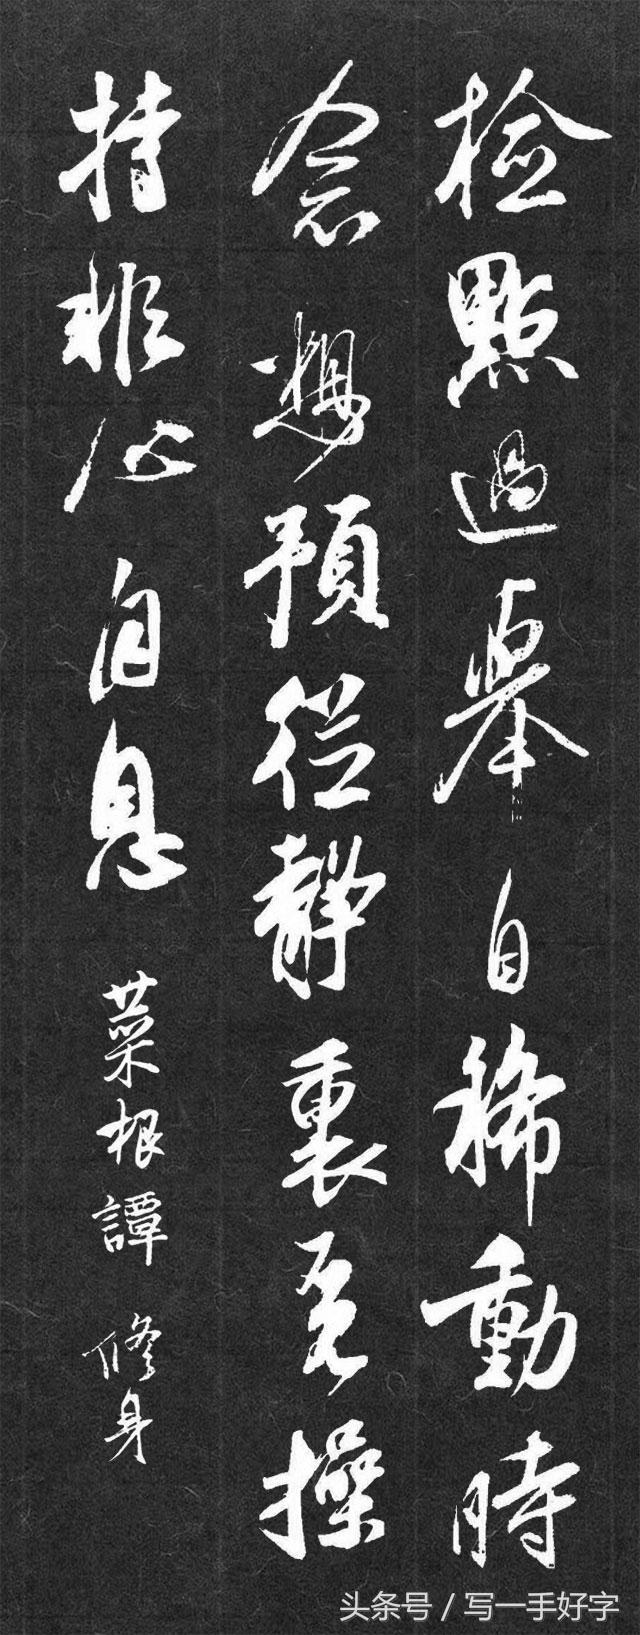 檢點過舉自稀動時
念想預從靜裏吾操
持非心自息
菜根譚 修身
头条号 / 写一手好字